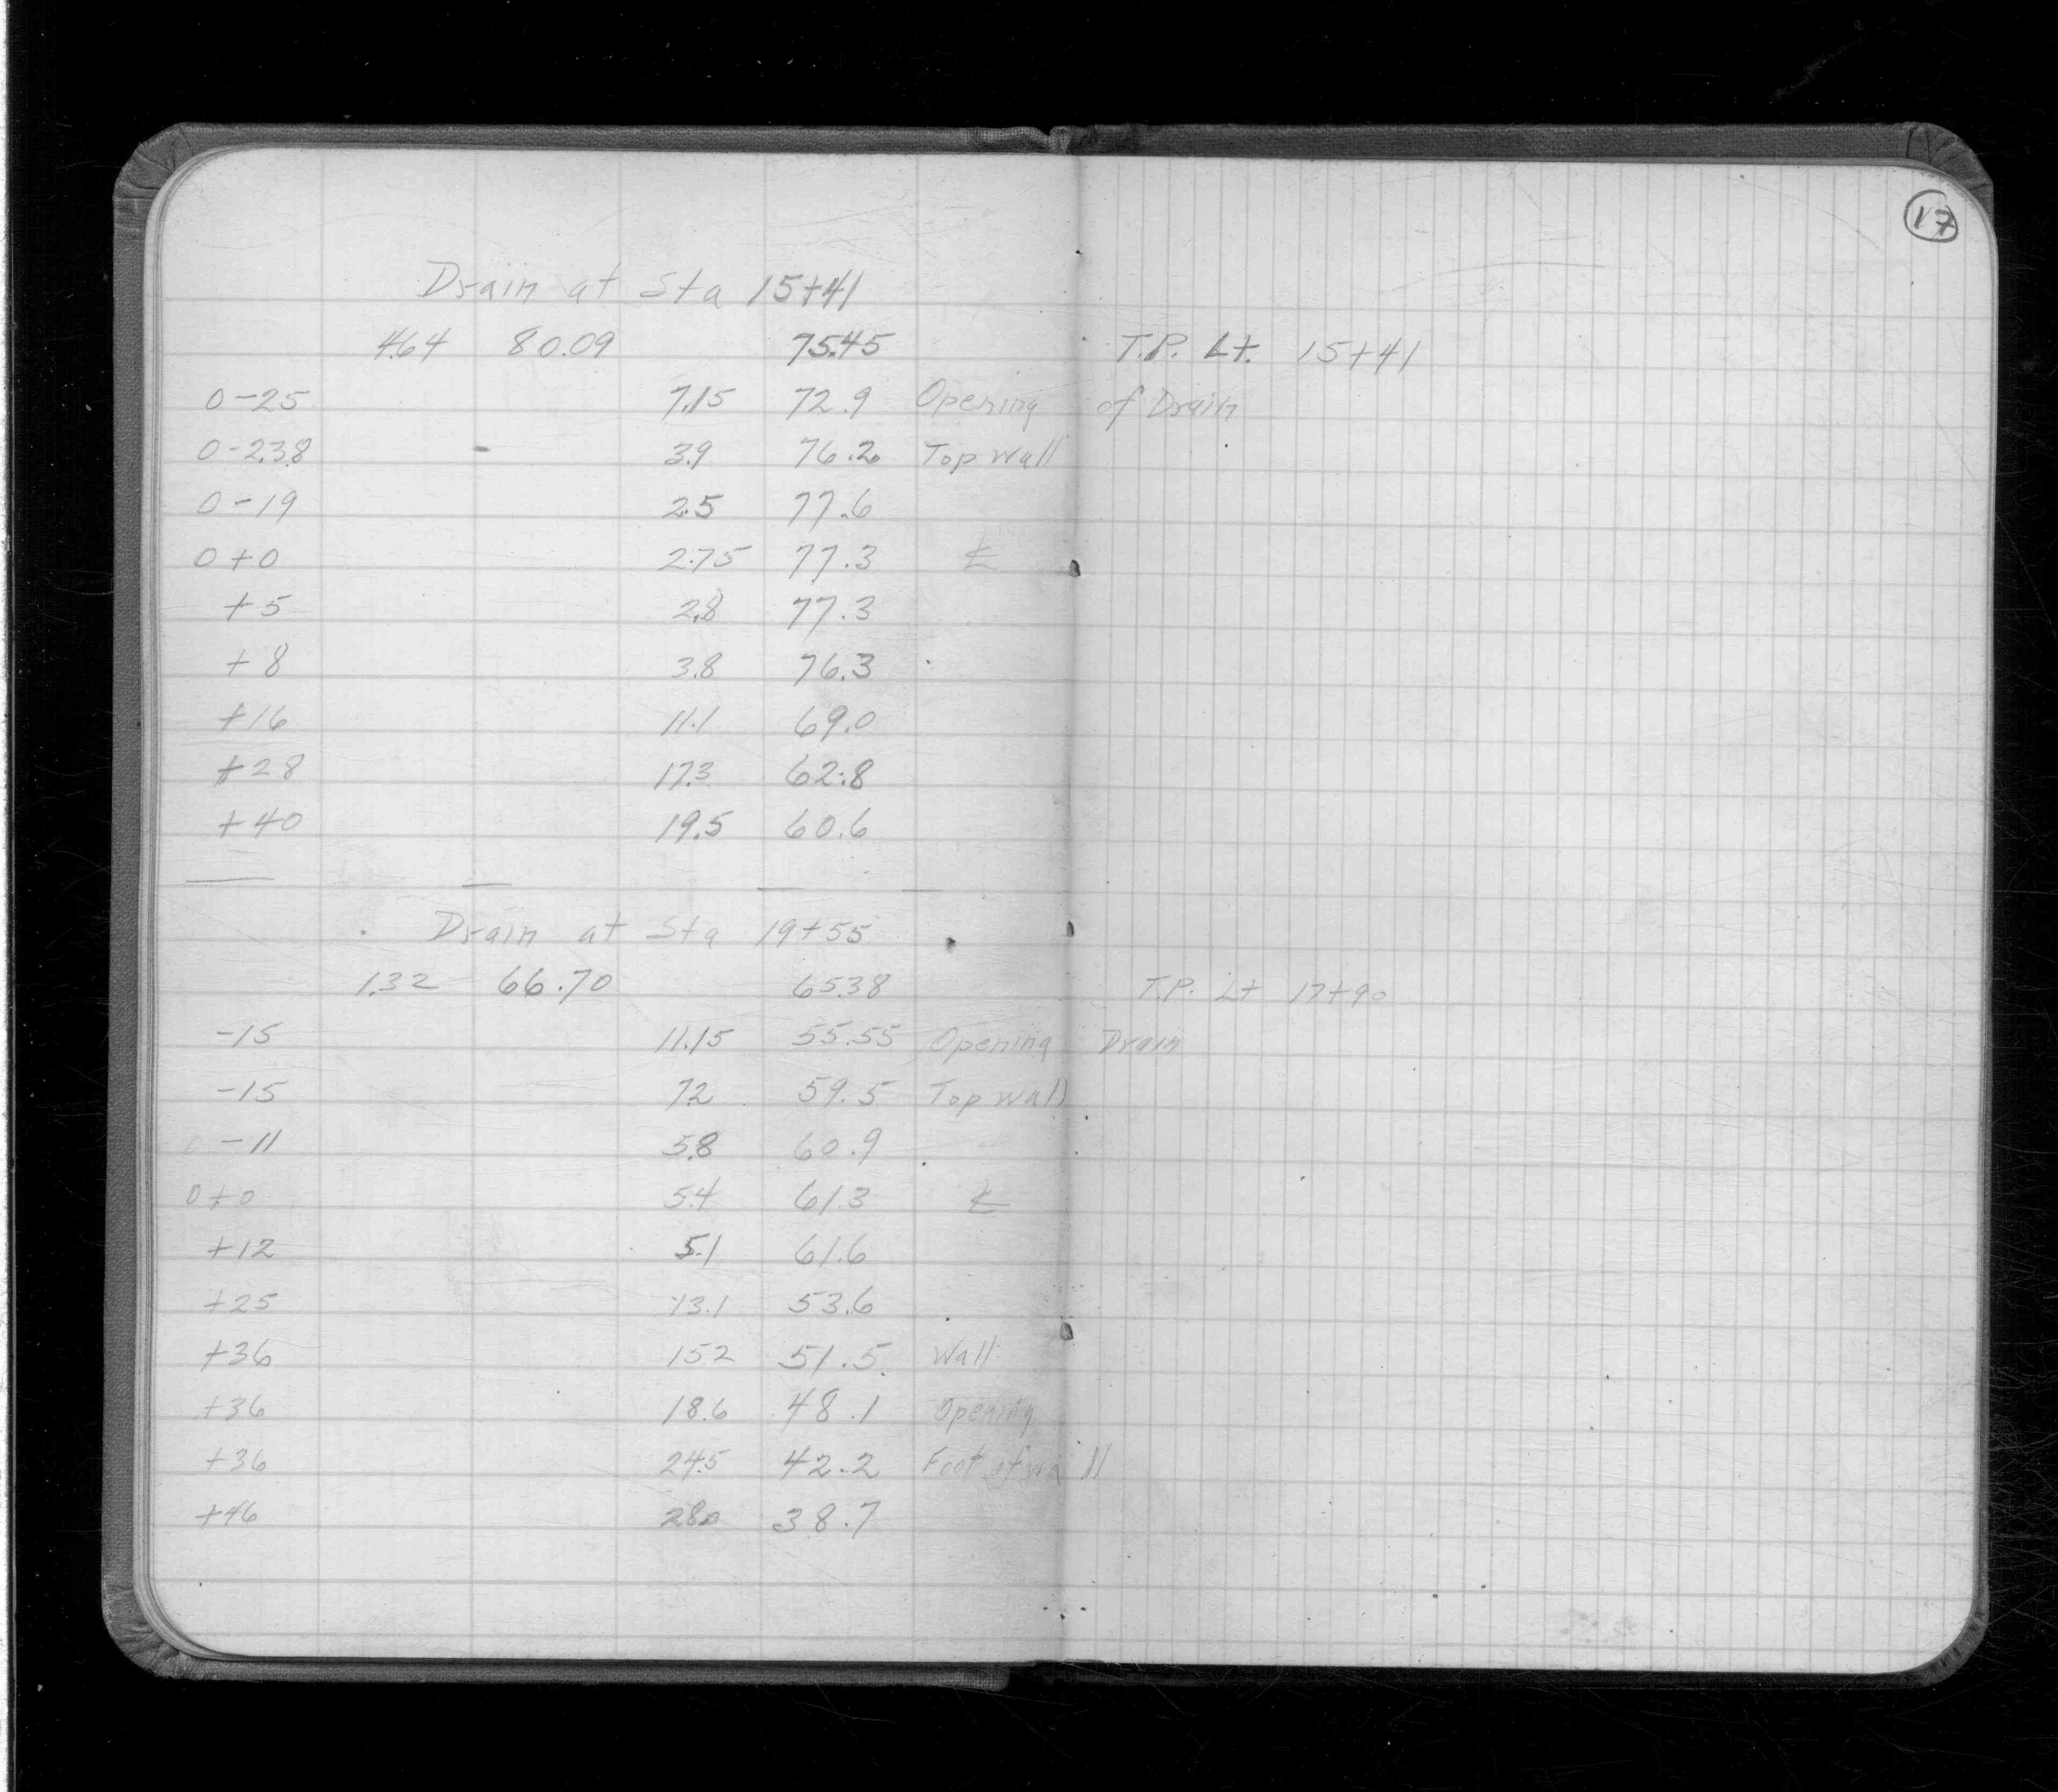 17
Drain at Sta 15+41
4.64 80.09 75.45 T.P. Lt. 15+41
0-25 7.15 72.9 Opening of Drain
0-23.8 3.9 76.2 Top wall
0-19 2.5 77.6
0+0 2.75 77.3 ℄
+5 2.8 77.3
+8 3.8 76.3
+16 11.1 69.0
+28 17.3 62.8
+40 19.5 60.6
Drain at Sta 19+55
1.32 66.70 65.38 T.P. Lt 17+90
-15 11.15 55.55 Opening Drain
-15 7.2 59.5 Top wall
-11 5.8 60.9
0+0 5.4 61.3 ℄
+12 5.1 61.6
+25 13.1 53.6
+36 15.2 51.5 Wall
+36 18.6 48.1 Opening
+36 24.5 42.2 Foot of wall
+46 28.0 38.7